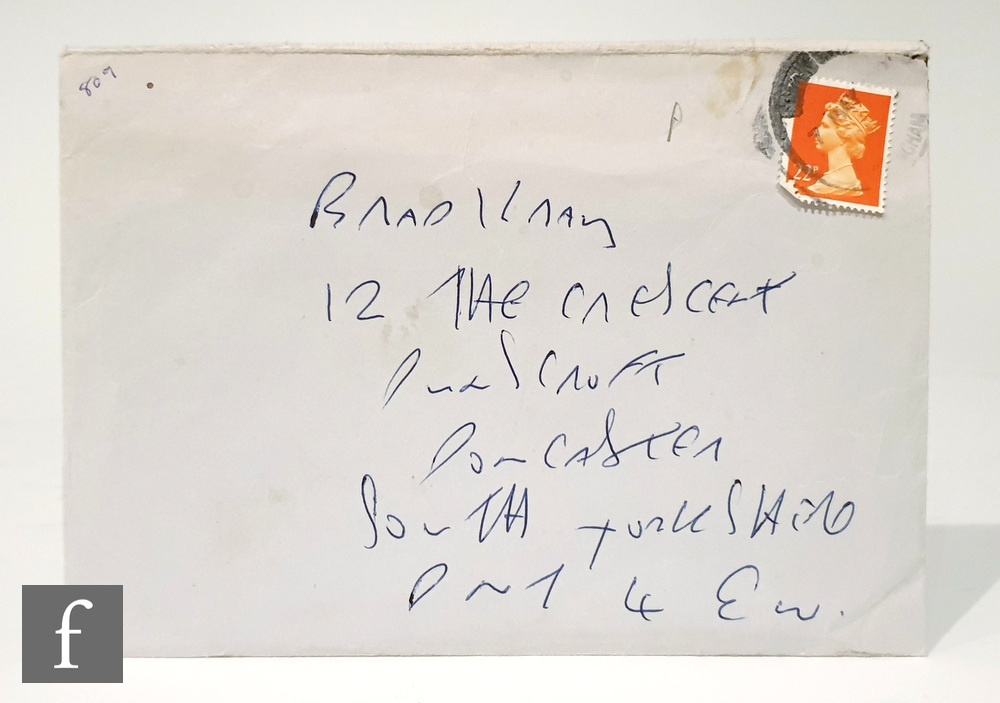 809
P
22P
BRAD KRAY
12 THE CRESCENT
DUNSCROFT
DONCASTER
SOUTH YORKSHIRE
DN7 4 EW.
f